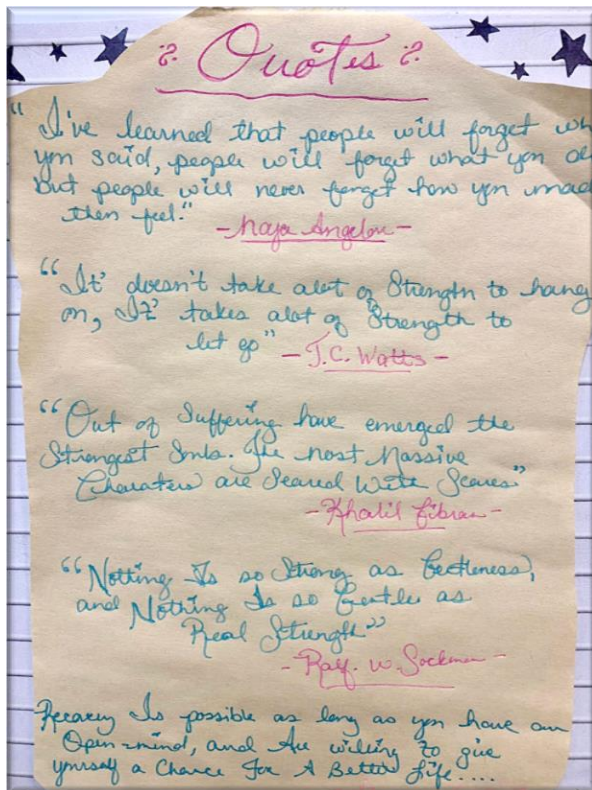 Quotes
"I've learned that people will forget wh
you said, people will forget what you di
But people will never forget how you made
then feel."
-Maya Angelou-
"It' doesn't take alot of Strength to hang
on, It' takes alot of Strength to
let go"
-J.C. Watts-
"Out of Suffering have emerged the
Strongest Souls. The most Massive
Charaters are Seared With Scares"
-Khalil Gibran-
"Notting Is so Strong as Gentleness,
and Nothing Is so Gentle as
Real Strength"
-Ralf. W. Sockman-
Recovery Is possible as long as you have an
Open-mind, and Are willing To give
yourself a Chance For A Better Life....